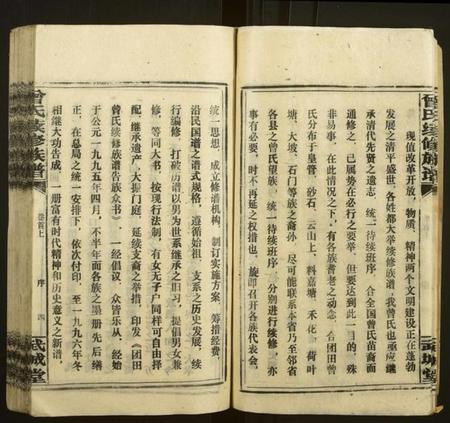 曾氏续修族谱
武城堂
现值改革开放，物质、精神两个文明建设正在蓬勃
发展之清平盛世，各姓都大举续修族谱，我曾氏也亟应继
承清代先贤之遗志，统一待续班序，合全国曾氏苗裔而
通修之，已属势在必行之要举，但要达到此一目的，殊
非易事，在此情况之下，有各族耆老之动念，合团田曾
氏分布于皇管、砂石、云山上、料嘉塘、禾花、荷叶
塘、大坡、石门等族之裔孙，尽可能联系本省乃至邻省
各县之曾氏望族，统一待续班序，分别进行续修，亦
事有必要，时不再延之权措也，旋即召开各族代表会，
统一思想，成立修谱机构，制订实施方案，筹措经费，
沿民国谱之谱式规格，遵循始祖、支系之历史发展，续
行编修，打破历谱以男为世系继承之旧习，提倡男女兼
修，等同大书，按现行法制，有女无子户同样可自由择
配，继承遗产，大振门庭，延续支裔之举措，印发《团田
曾氏续修族谱告族众书》，一经倡议，众皆乐从，经始
于公元一九九五年四月，不半年而各族之墨册先后缮
正，在总局之统一安排下，依次付印，至一九九六年冬
相继大功告成，一册富有时代精神和历史意义之新谱，
曾氏续修族谱
卷首上
序
四
武城堂